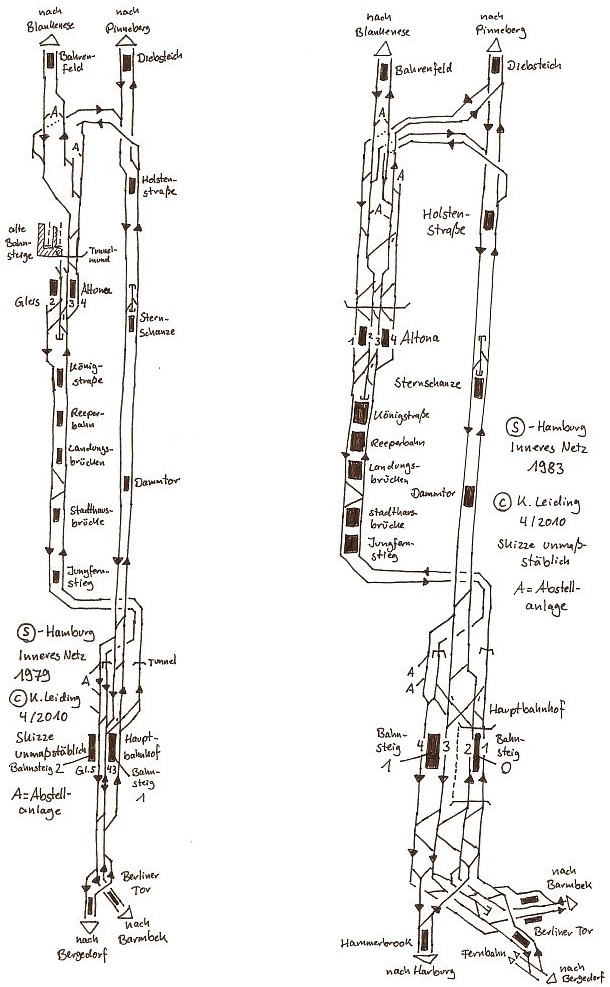 nach
Blankenese
nach
Pinneberg
Bahren-
feld
Diebsteich
A
A
Holsten-
straße
alte
Bahn-
steige
Tunnel-
mund
Altona
Gleis 2 3 4
Stern-
schanze
König-
straße
Reeper-
bahn
Landungs-
brücken
Dammtor
Stadthaus-
brücke
Jungfern-
stieg
Ⓢ-Hamburg
Inneres Netz
1979
© K. Leiding
4/2010
Skizze
unmaßstäblich
A=Abstell-
anlage
Tunnel
A
Bahnsteig 2
Gl.5
4 3
Haupt-
bahnhof
Bahn-
steig
1
Berliner
Tor
nach
Bergedorf
nach
Barmbek
nach
Blankenese
nach
Pinneberg
Bahrenfeld
Diebsteich
A
A
A
Holsten-
straße
1 2 3 4 Altona
Sternschanze
Königstraße
Reeperbahn
Landungs-
brücken
Dammtor
Stadthaus-
brücke
Jungfern-
stieg
Ⓢ-Hamburg
Inneres Netz
1983
© K. Leiding
4/2010
Skizze unmaß-
stäblich
A=Abstell-
anlage
A
A
Hauptbahnhof
Bahn-
steig
1
4 3 2 1
Bahn-
steig
0
nach
Barmbek
Berliner Tor
Hammerbrook
Fernbahn
nach Harburg
nach
Bergedorf